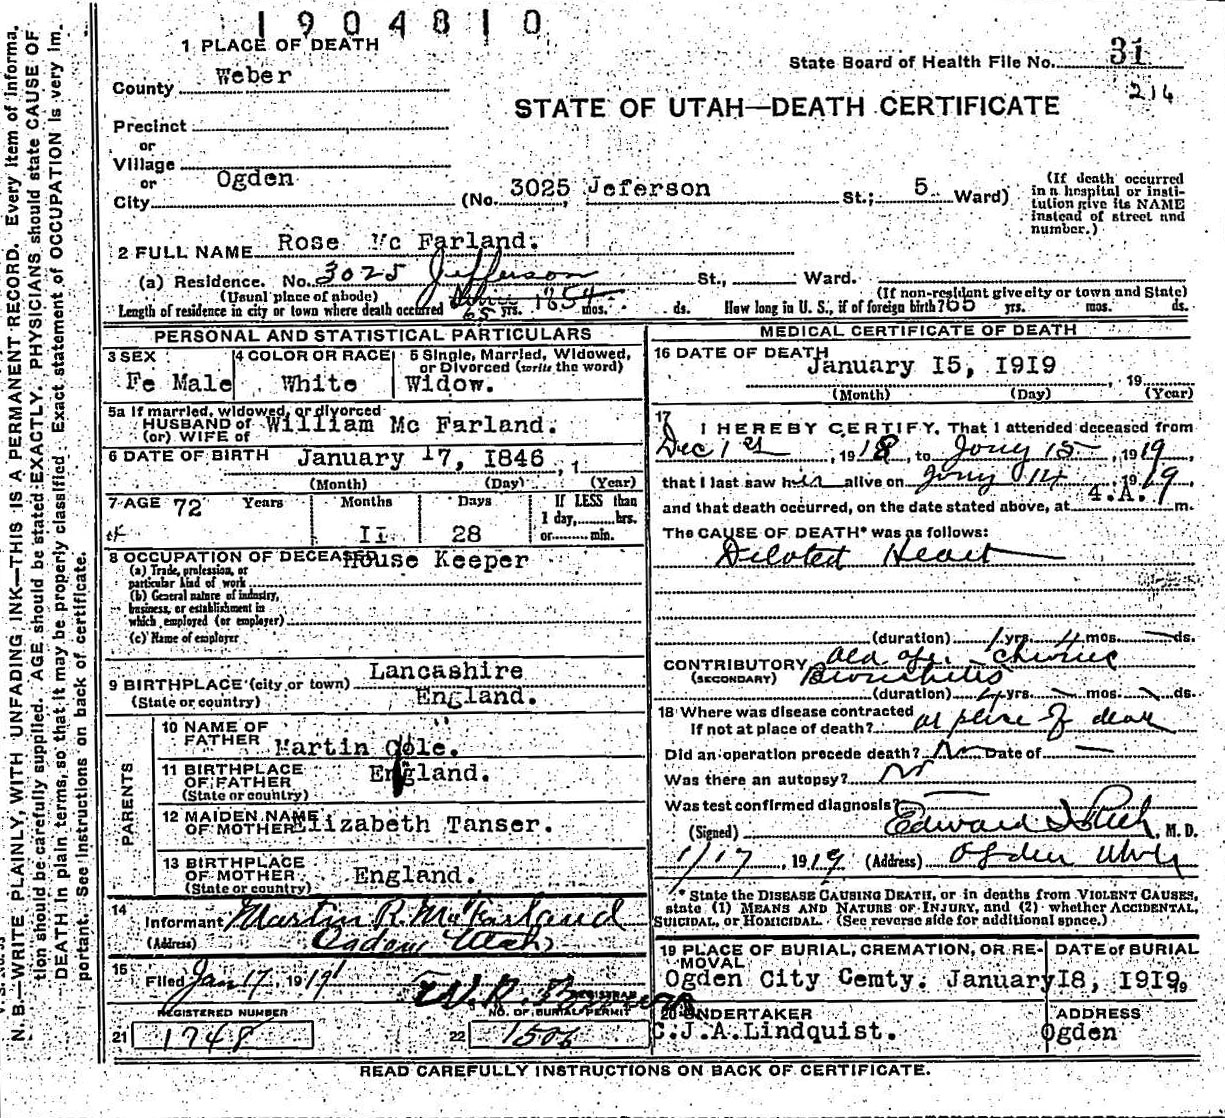 1904810
1 PLACE OF DEATH
County Weber
State Board of Health File No. 31
216
STATE OF UTAH—DEATH CERTIFICATE
Precinct
or
Village
or
City Ogden (No. 3025 Jeferson St.; 5 Ward)
(If death occurred in a hospital or insti-
tution give its NAME
instead of street and
number.)
2 FULL NAME Rose Mc Farland.
(a) Residence. No. 3025 Jefferson St., Ward.
(Usual place of abode) (If non-resident give city or town and State)
Length of residence in city or town where death occurred 65 yrs. mos. ds. How long in U. S., if of foreign birth? 65 yrs. mos. ds.
since 1854
PERSONAL AND STATISTICAL PARTICULARS
3 SEX Fe Male
4 COLOR OR RACE White
5 Single, Married, Widowed,
or Divorced (write the word)
Widow.
5a If married, widowed, or divorced
HUSBAND of
(or) WIFE of William Mc Farland.
6 DATE OF BIRTH January 17, 1846 , 1
(Month) (Day) (Year)
7 AGE 72 Years Months Days If LESS than
1 day,......hrs.
II 28 or......min.
8 OCCUPATION OF DECEASED House Keeper
(a) Trade, profession, or
particular kind of work
(b) General nature of industry,
business, or establishment in
which employed (or employer)
(c) Name of employer
9 BIRTHPLACE (city or town) Lancashire
(State or country) England.
PARENTS
10 NAME OF
FATHER Martin Cole.
11 BIRTHPLACE
OF FATHER England.
(State or country)
12 MAIDEN NAME
OF MOTHER Elizabeth Tanser.
13 BIRTHPLACE
OF MOTHER England.
(State or country)
14 Informant Martin R. McFarland
(Address) Ogden Utah
15 Filed Jan 17, 191
REGISTRAR
REGISTERED NUMBER NO. OF BURIAL PERMIT
21 1748 22 1506
MEDICAL CERTIFICATE OF DEATH
16 DATE OF DEATH January 15, 1919 , 19
(Month) (Day) (Year)
17 I HEREBY CERTIFY, That I attended deceased from
Dec 1st, 1918, to Jany 15, 1919,
that I last saw her alive on Jany 14, 1919,
and that death occurred, on the date stated above, at 4.A. m.
The CAUSE OF DEATH* was as follows:
Dilated Heart
(duration) 1 yrs. 4 mos. — ds.
CONTRIBUTORY Old age. Chronic
(SECONDARY) Bronchitis
(duration) 4 yrs. — mos. ds.
18 Where was disease contracted
If not at place of death? at place of death
Did an operation precede death? No Date of —
Was there an autopsy? No
Was test confirmed diagnosis? —
(Signed) Edward I Rich, M. D.
1/17, 1919 (Address) Ogden Utah
* State the DISEASE CAUSING DEATH, or in deaths from VIOLENT CAUSES,
state (1) MEANS AND NATURE OF INJURY, and (2) whether ACCIDENTAL,
SUICIDAL, or HOMICIDAL. (See reverse side for additional space.)
19 PLACE OF BURIAL, CREMATION, OR RE-
MOVAL DATE of BURIAL
Ogden City Cemty. January 18, 1919,
20 UNDERTAKER ADDRESS
C.J.A.Lindquist. Ogden
READ CAREFULLY INSTRUCTIONS ON BACK OF CERTIFICATE.
N. B.—WRITE PLAINLY, WITH UNFADING INK—THIS IS A PERMANENT RECORD. Every item of informa-
tion should be carefully supplied. AGE should be stated EXACTLY. PHYSICIANS should state CAUSE OF
DEATH in plain terms, so that it may be properly classified. Exact statement of OCCUPATION is very im-
portant. See Instructions on back of certificate.